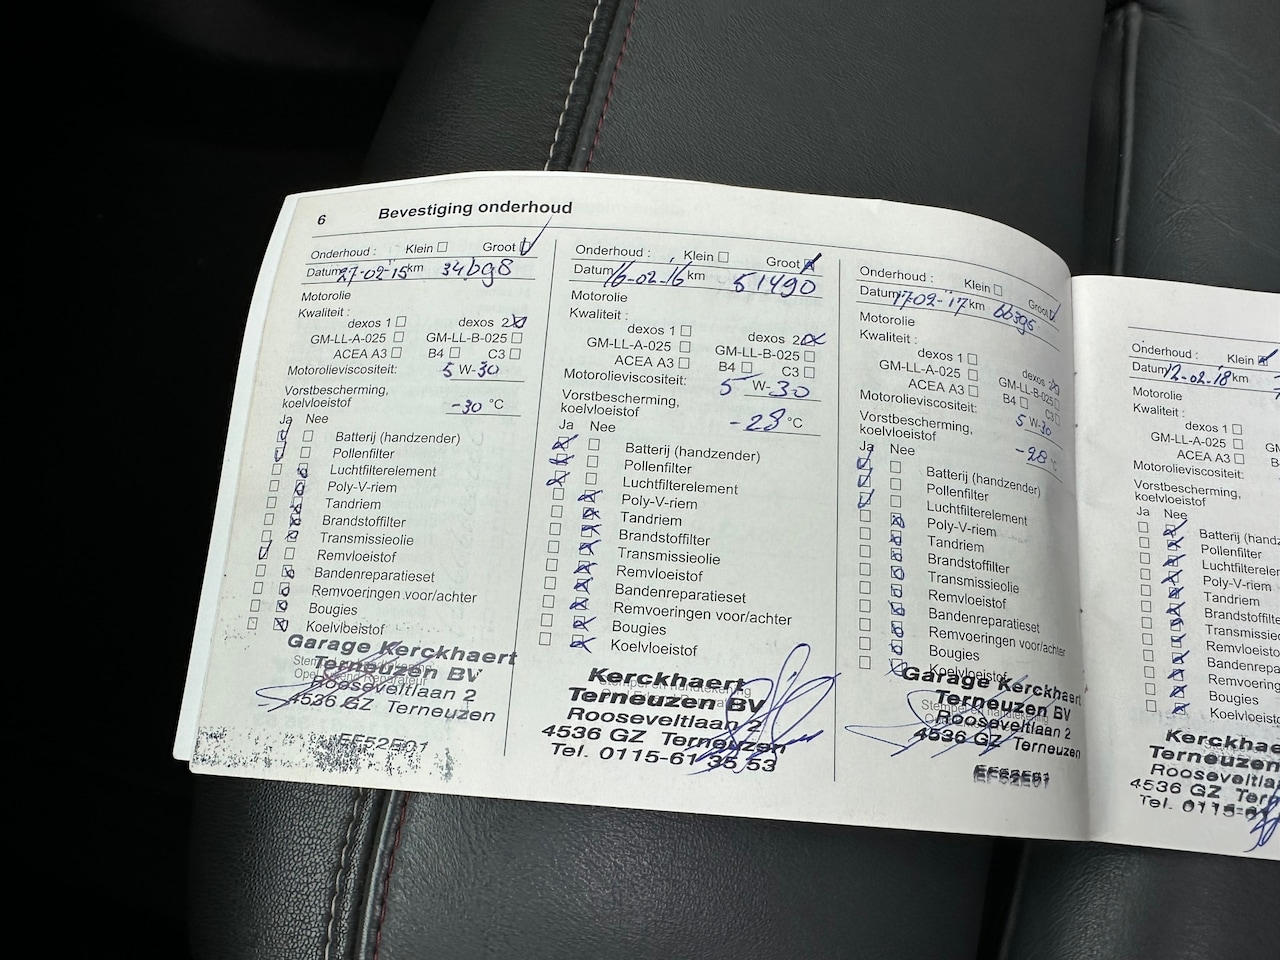 6 Bevestiging onderhoud
Onderhoud : Klein Groot
Datum 27-02-15 km 34698
Motorolie
Kwaliteit :
dexos 1 dexos 2
GM-LL-A-025 GM-LL-B-025
ACEA A3 B4 C3
Motorolieviscositeit: 5 W-30
Vorstbescherming,
koelvloeistof -30 °C
Ja Nee
Batterij (handzender)
Pollenfilter
Luchtfilterelement
Poly-V-riem
Tandriem
Brandstoffilter
Transmissieolie
Remvloeistof
Bandenreparatieset
Remvoeringen voor/achter
Bougies
Koelvloeistof
Garage Kerckhaert
Terneuzen BV
Rooseveltlaan 2
4536 GZ Terneuzen
EF52E01
Onderhoud : Klein Groot
Datum 16-02-16 km 51490
Motorolie
Kwaliteit :
dexos 1 dexos 2
GM-LL-A-025 GM-LL-B-025
ACEA A3 B4 C3
Motorolieviscositeit: 5 W-30
Vorstbescherming,
koelvloeistof -28 °C
Ja Nee
Batterij (handzender)
Pollenfilter
Luchtfilterelement
Poly-V-riem
Tandriem
Brandstoffilter
Transmissieolie
Remvloeistof
Bandenreparatieset
Remvoeringen voor/achter
Bougies
Koelvloeistof
Kerckhaert
Terneuzen BV
Rooseveltlaan 2
4536 GZ Terneuzen
Tel. 0115-61 35 53
Onderhoud : Klein Groot
Datum 17-02-'17 km 66395
Motorolie
Kwaliteit :
dexos 1 dexos 2
GM-LL-A-025 GM-LL-B-025
ACEA A3 B4 C3
Motorolieviscositeit: 5 W-30
Vorstbescherming,
koelvloeistof -28 °C
Ja Nee
Batterij (handzender)
Pollenfilter
Luchtfilterelement
Poly-V-riem
Tandriem
Brandstoffilter
Transmissieolie
Remvloeistof
Bandenreparatieset
Remvoeringen voor/achter
Bougies
Koelvloeistof
Garage Kerckhaert
Terneuzen BV
Rooseveltlaan 2
4536 GZ Terneuzen
EF52E01
Onderhoud : Klein
Datum 12-02-18 km
Motorolie
Kwaliteit :
dexos 1
GM-LL-A-025 GM
ACEA A3
Motorolieviscositeit:
Vorstbescherming,
koelvloeistof
Ja Nee
Batterij (handz
Pollenfilter
Luchtfilterele
Poly-V-riem
Tandriem
Brandstoffilte
Transmissieo
Remvloeisto
Bandenrepa
Remvoering
Bougies
Koelvloeist
Kerckhae
Terneuzen
Rooseveltla
4536 GZ Ter
Tel. 0115-61